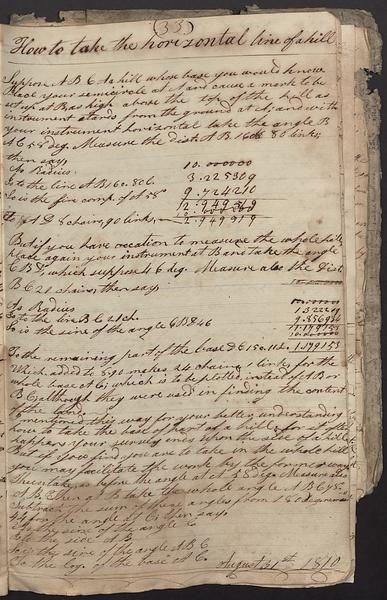 (33)
How to take the horizontal line of a hill
Suppose A B C a hill whose base you would know
Place your semicircle at A and cause a mark to be
set up at B as high above the top of the hill as
instrument stands from the ground at A; and with
your instrument horizontal take the angle B
A C 58 deg. Measure the dist. A B 16ch 80 links;
then say,
As Radius 10.000000
Is to the line A B 16c.80l. 3.225309
So is the sine comp. of A 58° 9.724210
12.949519
To A D 8 chains, 90 links, 2.949519
But if you have occation to measure the whole hill,
place again your instrument at B and take the angle
C B D, which suppose 46 deg. Measure also the Dist.
B C 21 chains; then say
As Radius
Is to the line B C 21 ch.
So is the sine of the angle C B D 46 9.856934
To the remaining part of the base D C 15c.11l.
Which added to 890 makes 24 chains 1 links for the
whole base A C; which is to be plotted instead of A B or
B C although they were used in finding the content
of the land.
I mentioned this way for your better understanding
how to take the base of part of a hill; for so often
happens your survey ends upon the side of a hill
But if you find you are to take in the whole hill
you may facilitate the work by the foregoing way
Thus, take, as before the angle at A 58° Measure
A B Then at B take the whole angle A B C 78°
Subtract the sum of these angles from 180 gr remains
for the angle at C; then say
As the sine of the angle C
Is to the side A B
So is the sine of the angle A B C
To the log. of the base A C. August 31st 1810